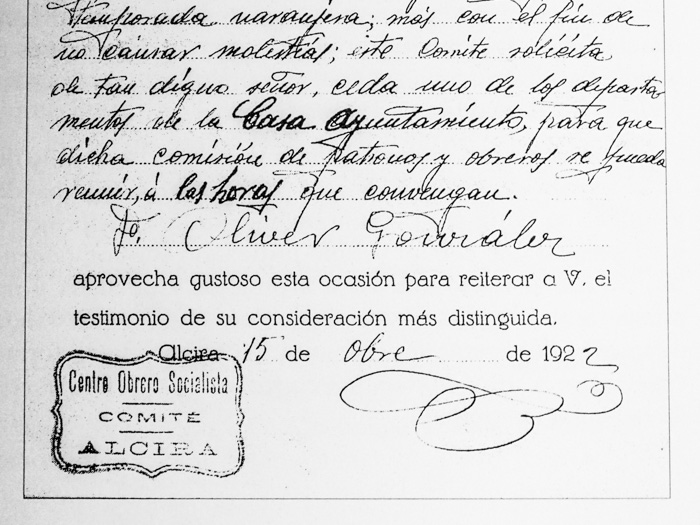 temporada naranjera; más con el fin de
no causar molestias; este Comite solicita
de tan digno señor, ceda uno de los departa
mentos de la Casa Ayuntamiento, para que
dicha comisión de patronos y obreros se pueda
reunir, á las horas que convengan.
Fo. Oliver González
aprovecha gustoso esta ocasión para reiterar a V. el
testimonio de su consideración más distinguida.
Alcira 15 de Obre de 1922
Centro Obrero Socialista
COMITÉ
ALCIRA